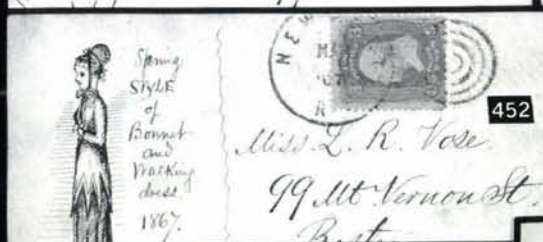 Spring
STYLE
of
Bonnet
and
Walking
dress.
1867.
NEW
452
Miss L. R. Vose.
99 Mt Vernon St.
Boston